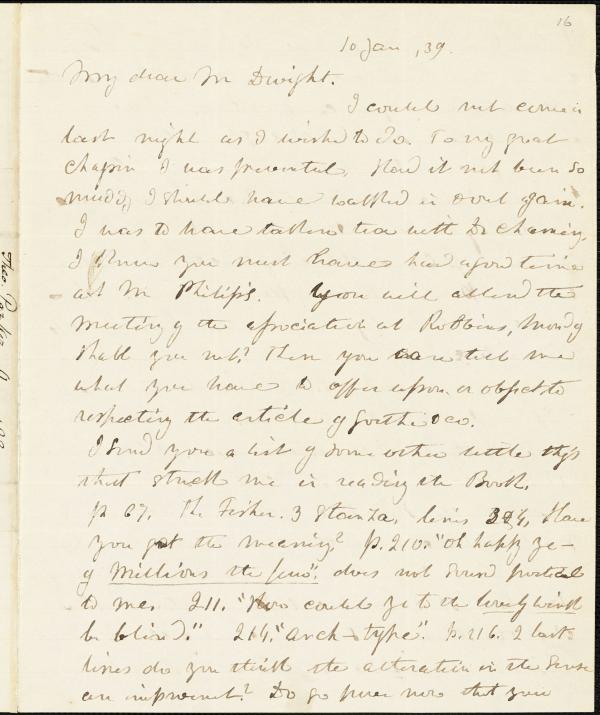 16
10 Jan, 39.
My dear Mr Dwight.
I could not come in
last night as I wished to do. To my great
Chagrin I was prevented. Had it not been so
muddy I should have walked in & out again.
I was to have taken tea with Dr Channing.
I know you must have had a good time
at Mr Philips. You will attend the
meeting of the association at Robbins, Monday
shall you not? Then you can tell me
what you have to offer upon or object to
respecting the article of Goethe &co.
I send you a list of some other little thgs
that struck me in reading the Book.
p 67. The Fisher. 3 Stanza, lines 3&4, Have
you got the meaning? p. 210. "Oh happy ye—
of Millions the few", does not sound poetical
to me. 211. "Who could ye to the lovely
be blind." 214. "arch-type". p. 216. 2 last
lines do you think the alteration in the sense
an improvmt? Do go now that you
Theo Parker